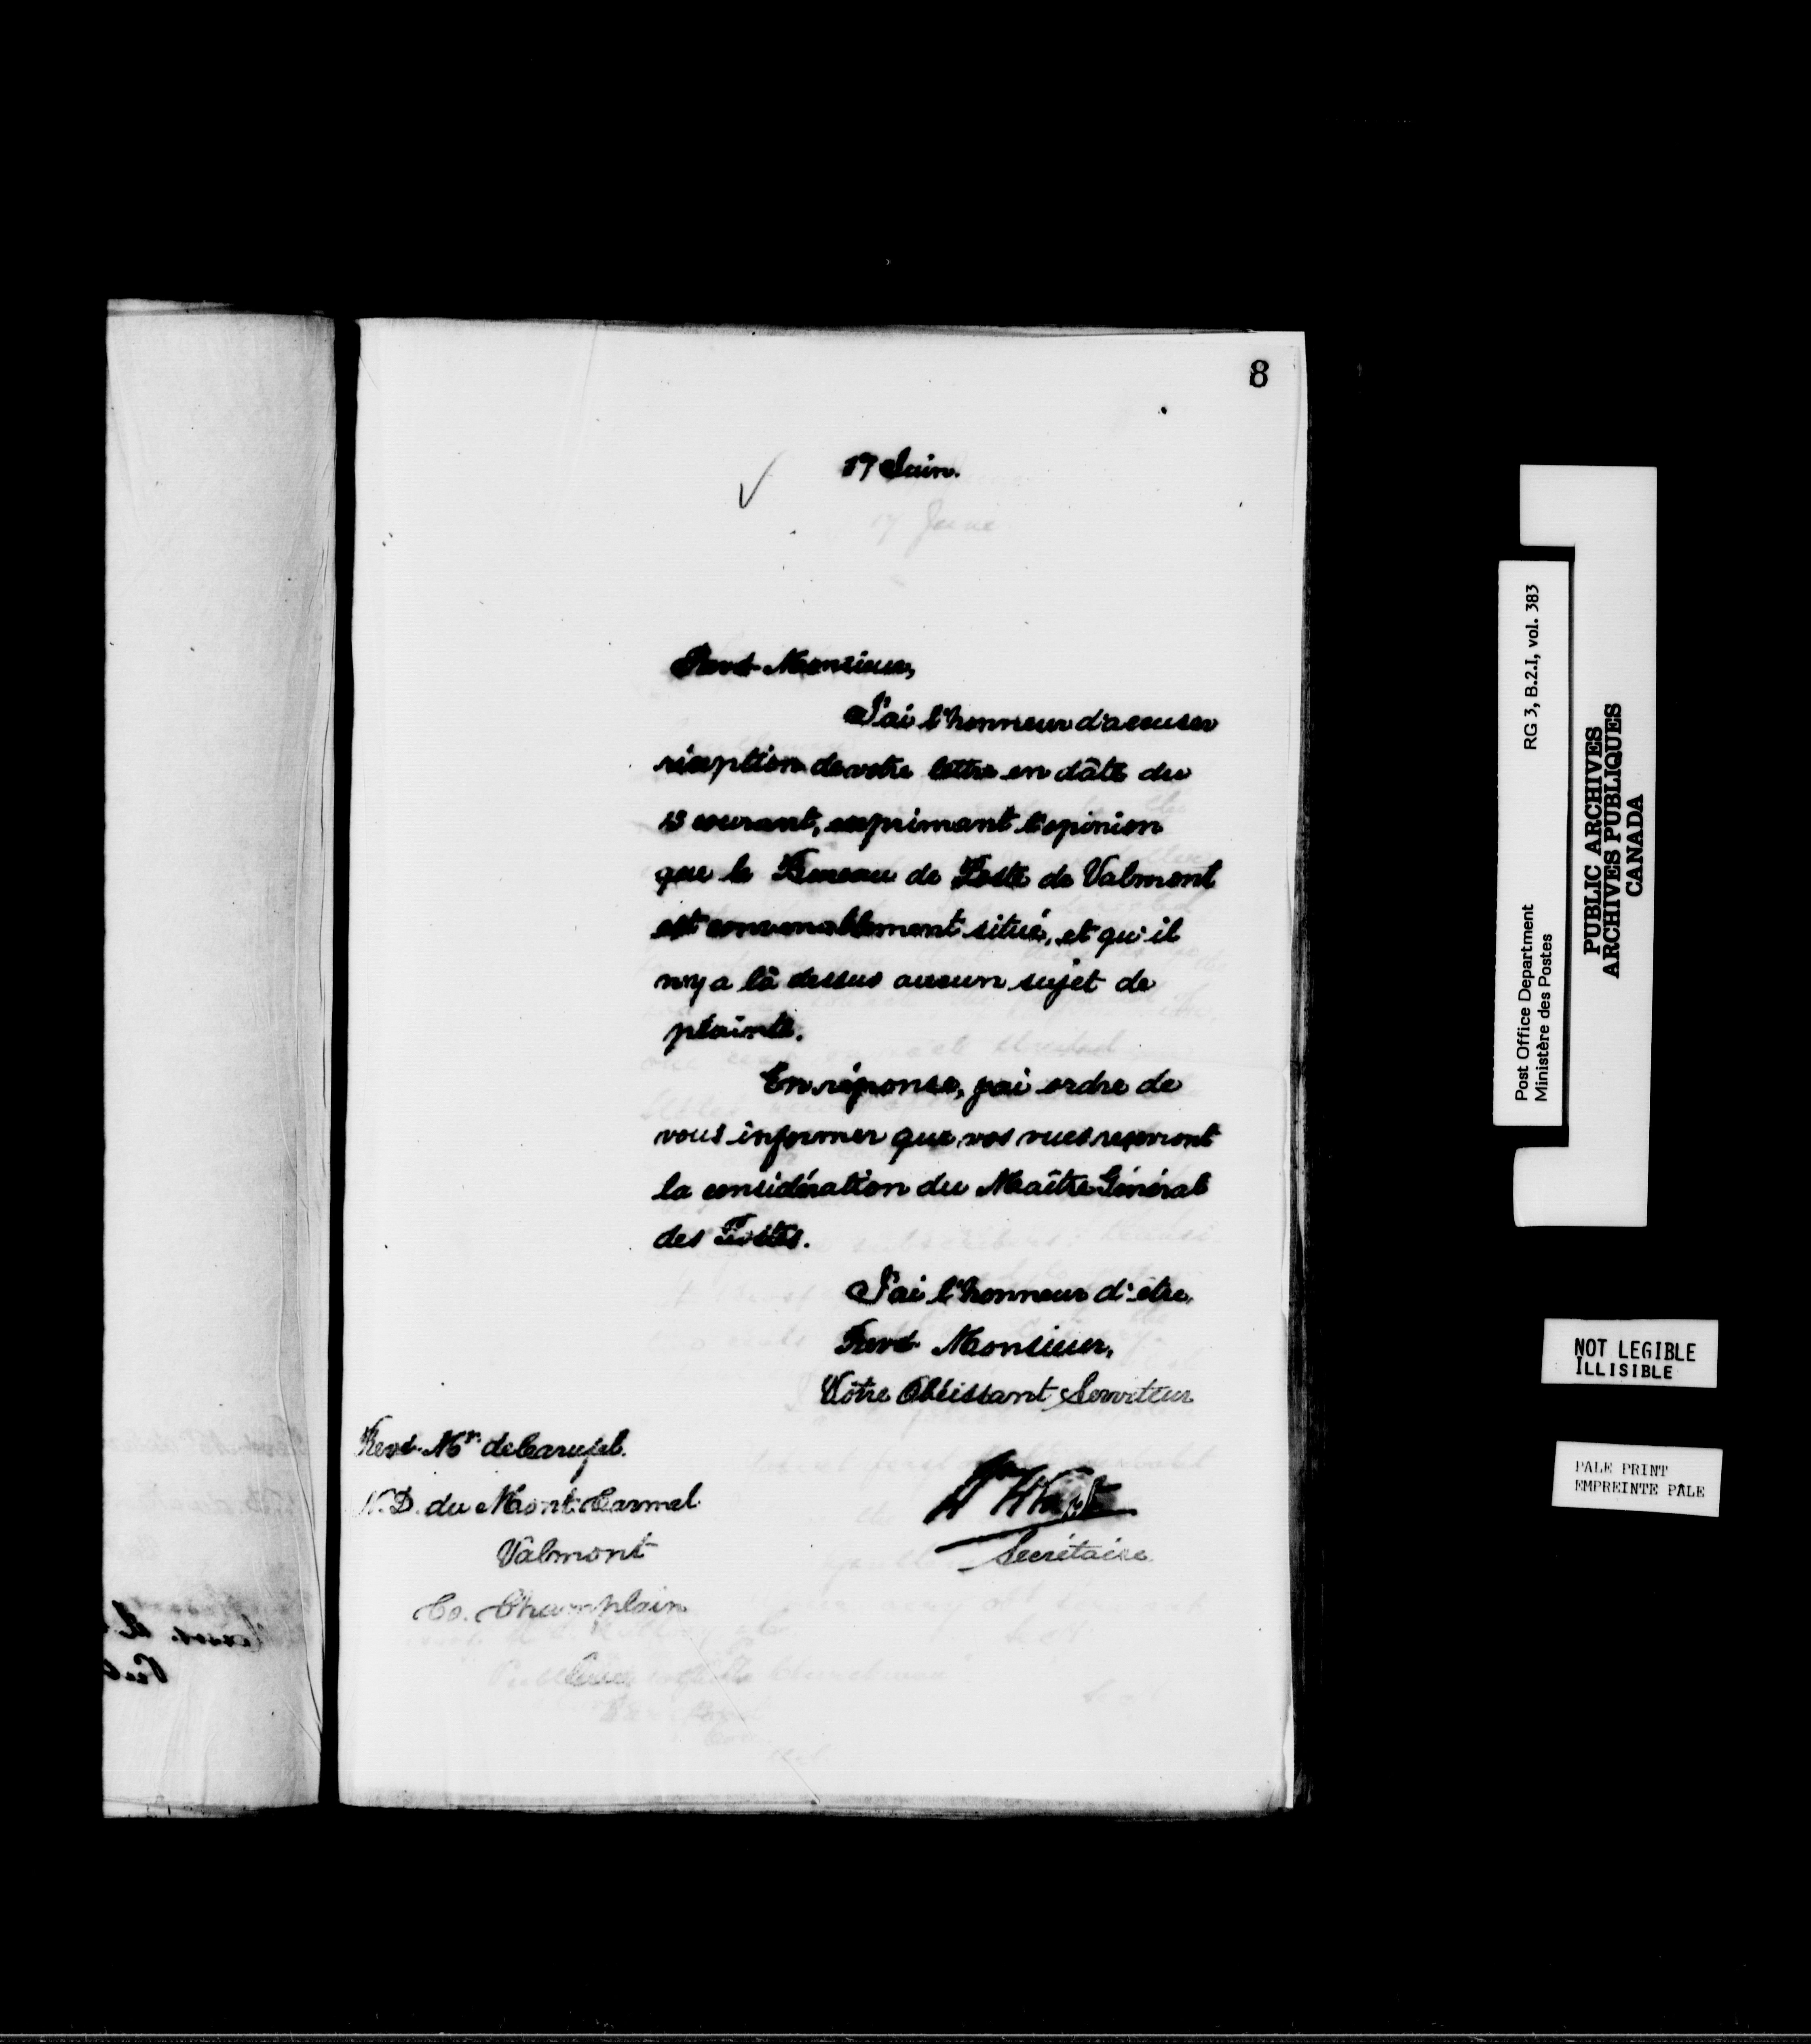 8
17 Juin.
Revd Monsieur,
J'ai l'honneur d'accuser
réception de votre lettre en dâte du
13 courant, exprimant l'opinion
que le Bureau de Poste de Valmont
est convenablement situé, et qu'il
n'y a là dessus aucun sujet de
plainte.
En réponse, j'ai ordre de
vous informer que vos vues recevront
la considération du Maître Général
des Postes.
J'ai l'honneur d'être,
Revd Monsieur,
Vôtre Obéissant Serviteur
Secrétaire
Revd. Mr.
N. D. du Mont Carmel
Valmont
Co. Champlain
Post Office Department
Ministère des Postes
RG 3, B.2.I, vol. 383
PUBLIC ARCHIVES
ARCHIVES PUBLIQUES
CANADA
NOT LEGIBLE
ILLISIBLE
PALE PRINT
EMPREINTE PÂLE